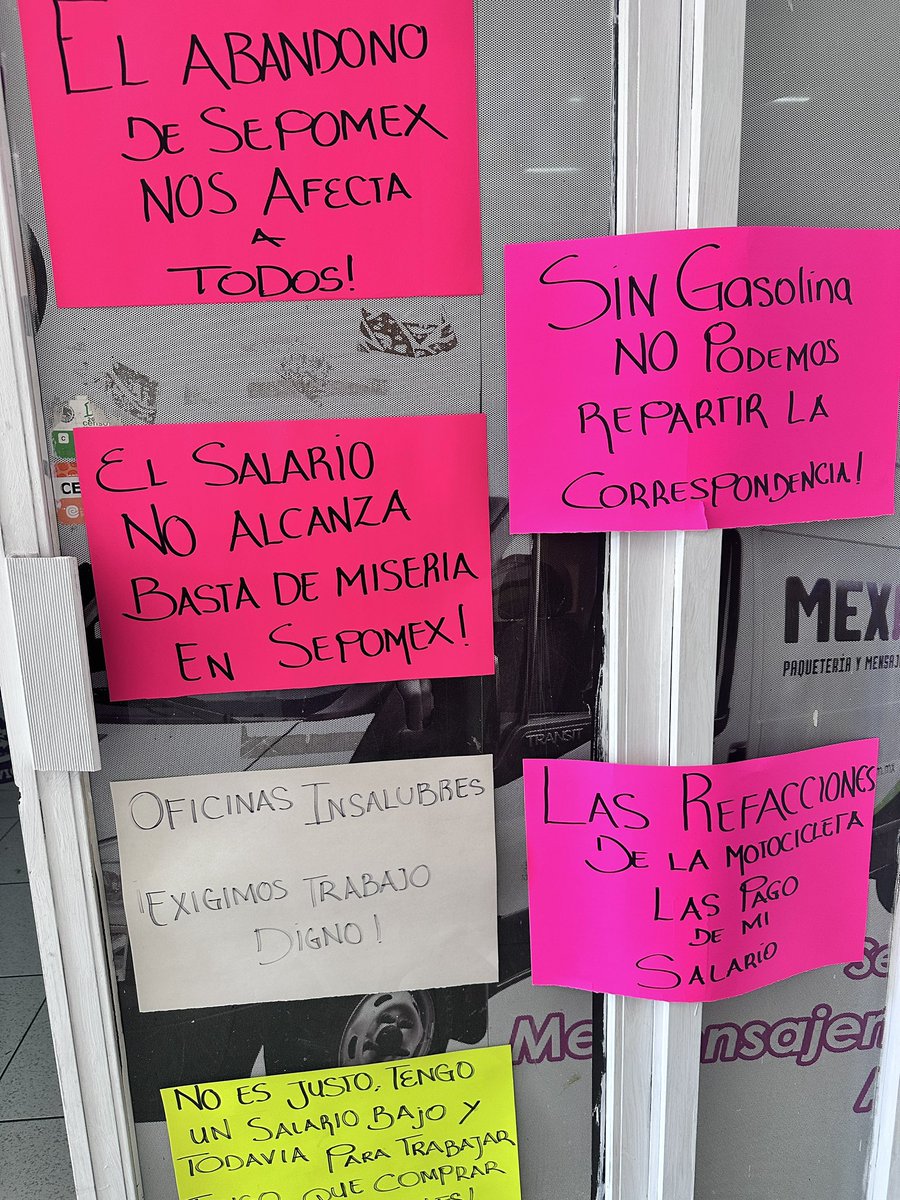 EL ABANDONO
DE SEPOMEX
NOS AFECTA
A
TODOS!
SIN GASOLINA
NO PODEMOS
REPARTIR LA
CORRESPONDENCIA!
EL SALARIO
NO ALCANZA
BASTA DE MISERIA
EN SEPOMEX!
MEX
PAQUETERÍA Y MENSAJ
TRANSIT
OFICINAS INSALUBRES
¡EXIGIMOS TRABAJO
DIGNO!
LAS REFACCIONES
DE LA MOTOCICLETA
LAS PAGO
DE MI
SALARIO
Se
Me nsajer
NO ES JUSTO, TENGO
UN SALARIO BAJO Y
TODAVIA PARA TRABAJAR
TENGO QUE COMPRAR
CE